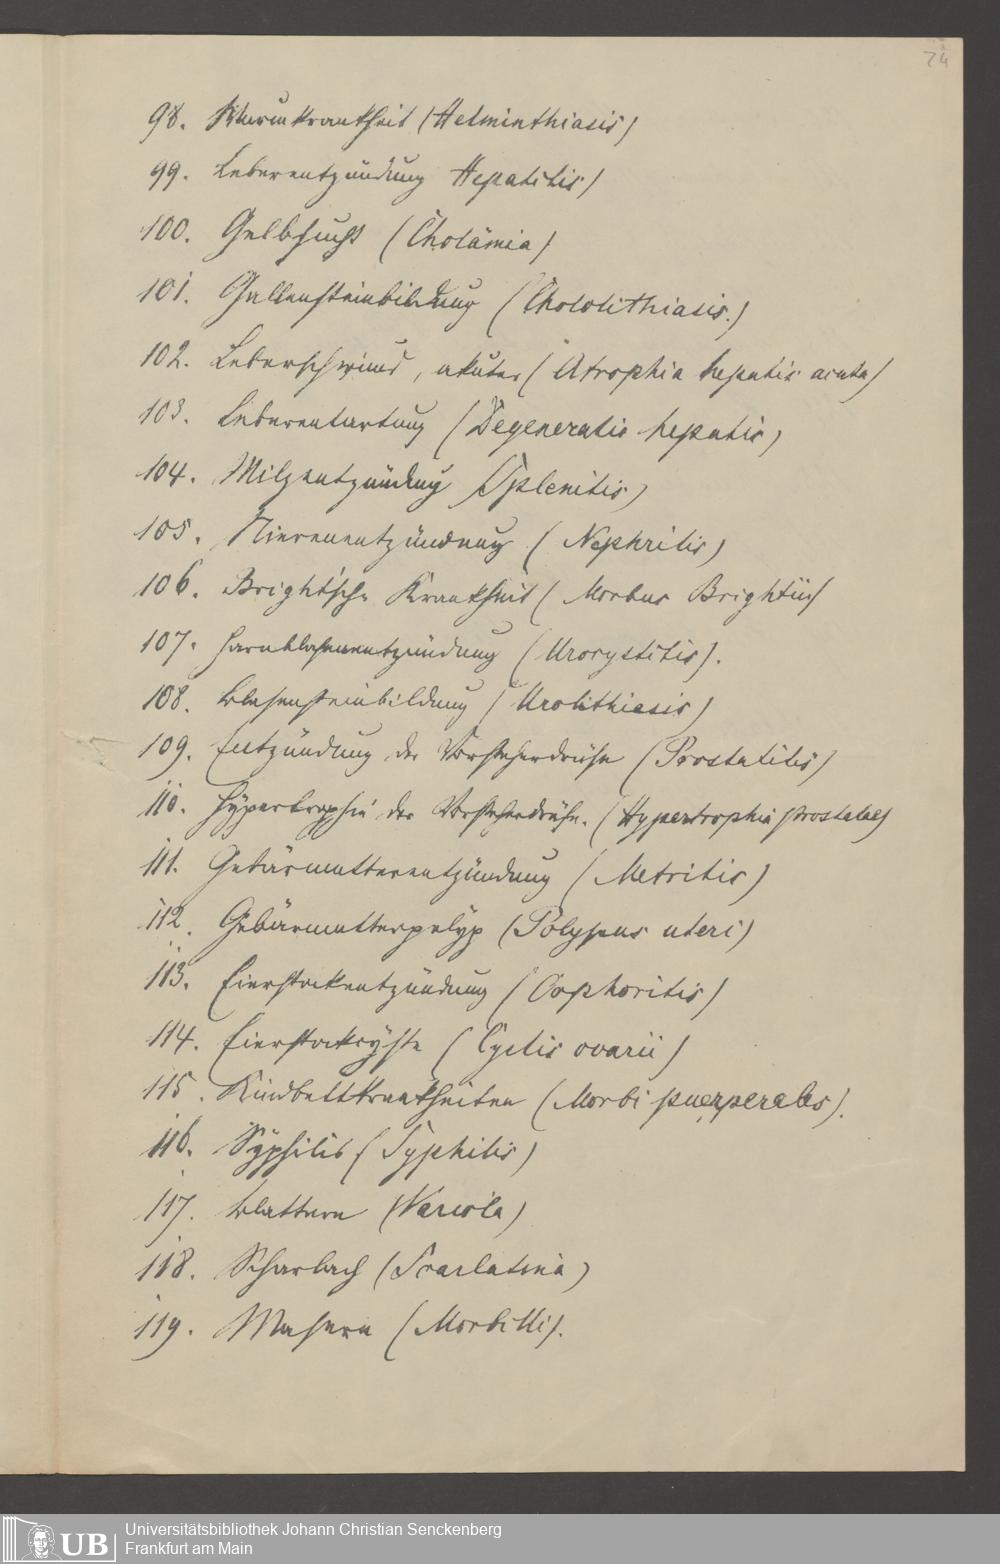 74
98. Wurmkrankheit (Helminthiasis)
99. Leberentzündung Hepatitis)
100. Gelbsucht (Cholämia)
101. Gallensteinbildung (Chololithiasis.)
102. Leberschwund, akuter (Atrophia hepatis acuta)
103. Leberentartung (Degeneratio hepatis)
104. Milzentzündung (Splenitis)
105. Nierenentzündung (Nephritis)
106. Bright'sche Krankheit (Morbus Brightii)
107. Harnblasenentzündung (Urocystitis).
108. Blasensteinbildung (Urolithiasis)
109. Entzündung der Vorsteherdrüse (Prostatitis)
110. Hypertrophie der Vorsteherdrüse. (Hypertrophia prostatae)
111. Gebärmutterentzündung (Metritis)
112. Gebärmutterpolyp (Polypus uteri)
113. Eierstockentzündung (Oophoritis)
114. Eierstockcyste (Cystis ovarii)
115. Kindbettkrankheiten (Morbi puerperales).
116. Syphilis (Syphilis)
117. Blattern (Variola)
118. Scharlach (Scarlatina)
119. Masern (Morbilli).
UB
Universitätsbibliothek Johann Christian Senckenberg
Frankfurt am Main